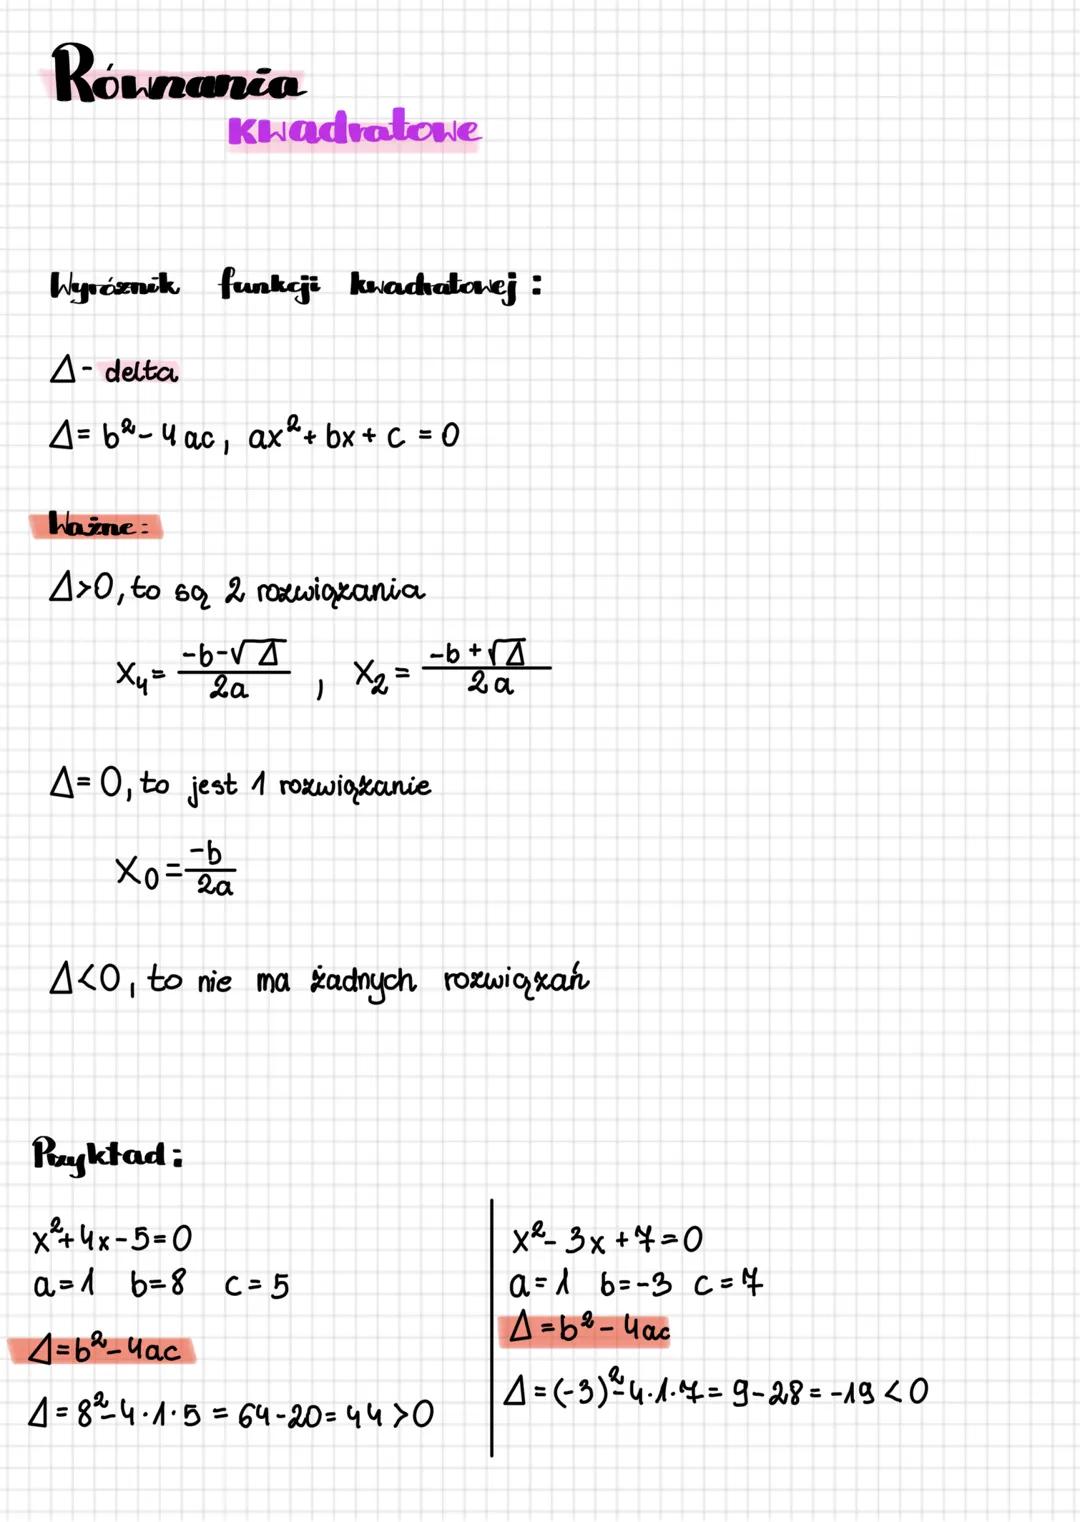 Równania
kwadratowe
Wyróżnik funkcji kwadratowej :
Δ - delta
Δ = b² - 4ac, ax² + bx + c = 0
Ważne :
Δ>0, to są 2 rozwiązania
X₁ = (-b-√Δ)/2a , X₂ = (-b+√Δ)/2a
Δ = 0, to jest 1 rozwiązanie
X₀ = -b/2a
Δ<0, to nie ma żadnych rozwiązań
Przykład :
x²+4x-5=0
a=1 b=8 c=5
Δ=b²-4ac
Δ = 8²-4·1·5 = 64-20 = 44 >0
x²-3x+7=0
a=1 b=-3 c=7
Δ=b²-4ac
Δ=(-3)²-4·1·7 = 9-28 = -19 <0